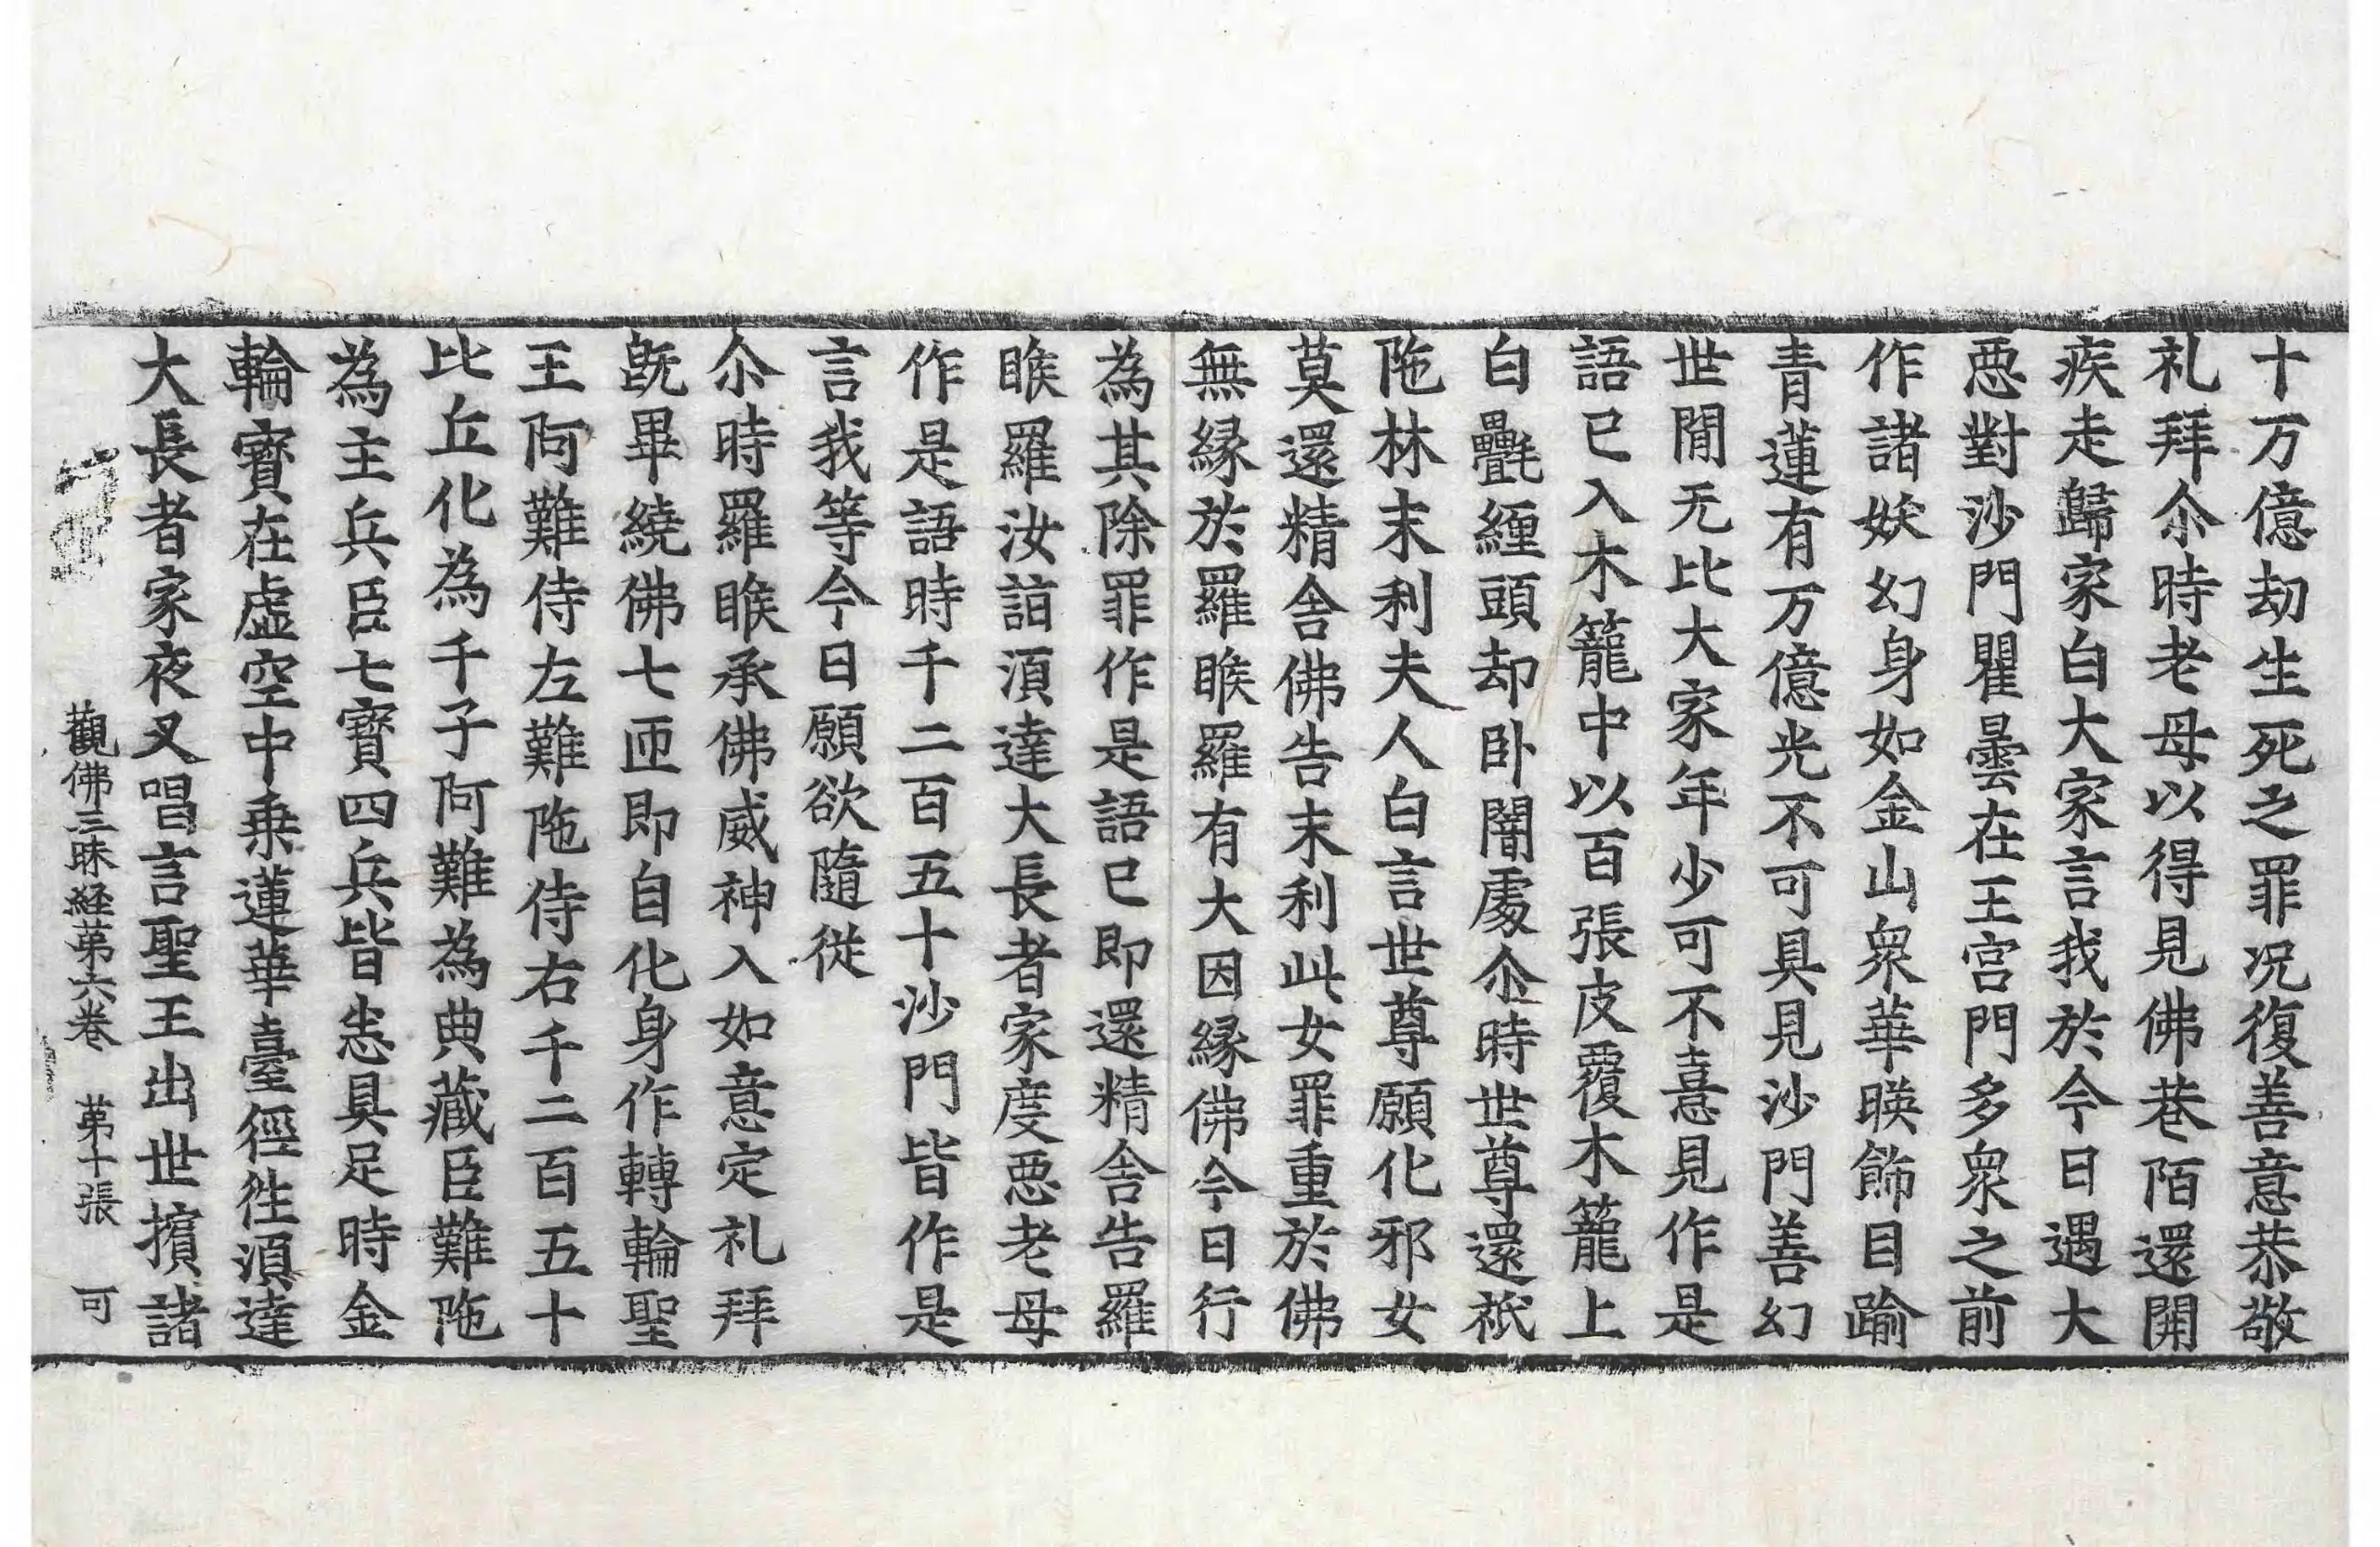 十万億劫生死之罪况復善意恭敬
礼拜尒時老母以得見佛巷陌還開
疾走歸家白大家言我於今日遇大
惡對沙門瞿曇在王宫門多衆之前
作諸妖幻身如金山衆華暎飾目踰
青蓮有万億光不可具見沙門善幻
世間无比大家年少可不憙見作是
語已入木籠中以百張皮覆木籠上
白㲲纏頭却卧闇處尒時世尊還祇
陁林末利夫人白言世尊願化邪女
莫還精舍佛告末利此女罪重於佛
無縁於羅睺羅有大因縁佛今日行
為其除罪作是語已即還精舍告羅
睺羅汝詣湏達大長者家度惡老母
作是語時千二百五十沙門皆作是
言我等今日願欲隨從
尒時羅睺承佛威神入如意定礼拜
旣畢繞佛七匝即自化身作轉輪聖
王阿難侍左難陁侍右千二百五十
比丘化為千子阿難為典藏臣難陁
為主兵臣七寳四兵皆悉具足時金
輪寳在虚空中乗蓮華臺徑徃湏達
大長者家夜叉唱言聖王出世擯諸
觀佛三昧経第六巻 第十張 可